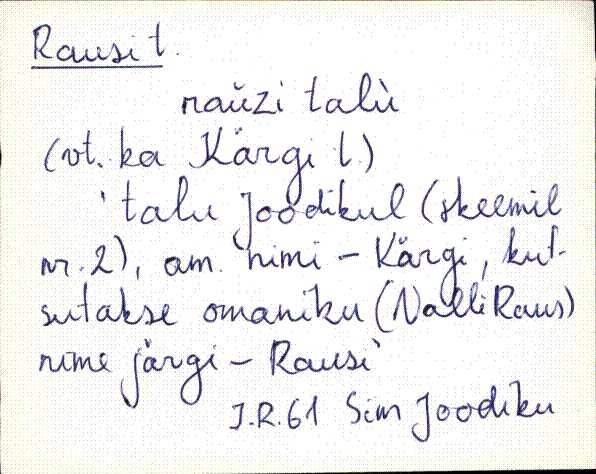 Rausi t.
raŭzi talù
(vt. ka Kärgi t.)
'talu Joodikul (skeemil
nr. 2), am. nimi – Kärgi, kut-
sutakse omaniku (Nalli Raus)
nime järgi – Rausi'
J.R. 61 Sim Joodiku